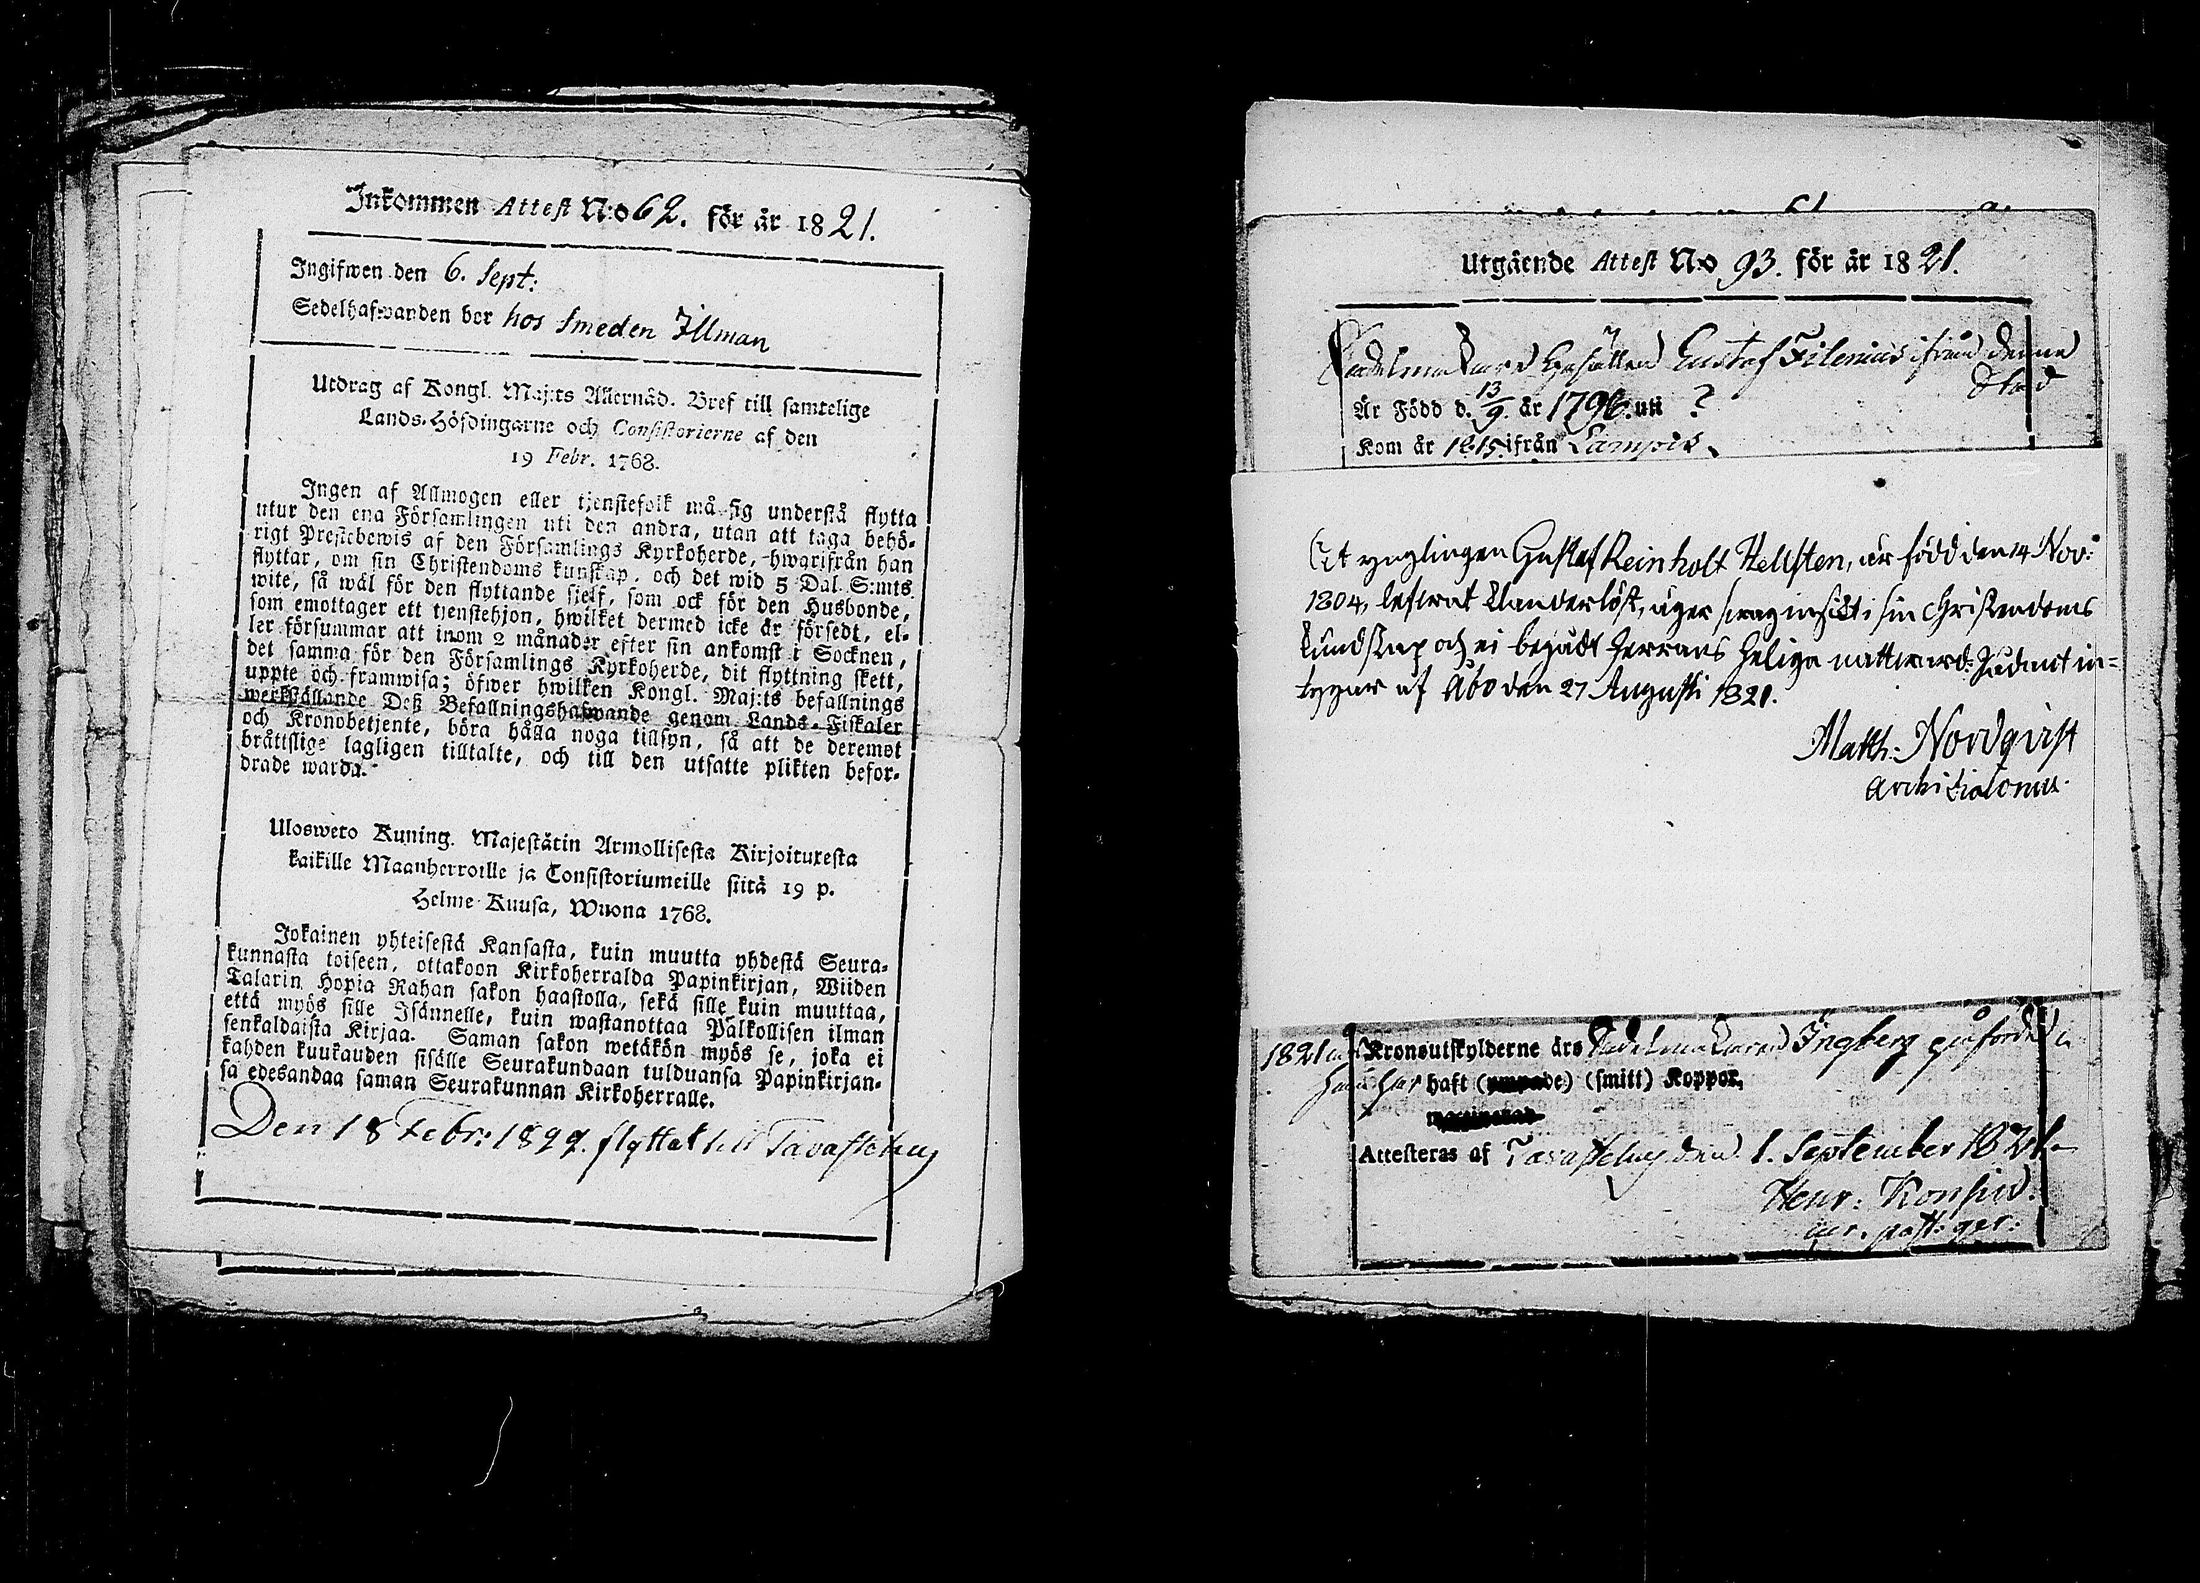 Inkommen Attest N:o 62. för år 1821.
Ingifwen den 6. Sept:
Sedelhafwanden bor hos Smeden Illman
Utdrag af Kongl. Maj:ts Allernåd. Bref till samtelige
Lands-Höfdingarne och Consistorierne af den
19 Febr. 1768.
Ingen af Allmogen eller tjenstefolk må sig understå flytta
utur den ena Församlingen uti den andra, utan att taga behö-
rigt Prestebewis af den Församlings Kyrkoherde, hwarifrån han
flyttar, om sin Christendoms kunskap, och det wid 5 Dal. S:mts
wite, så wäl för den flyttande sjelf, som ock för den Husbonde,
som emottager ett tjenstehjon, hwilket dermed icke är försedt, el-
ler försummar att inom 2 månader efter sin ankomst i Socknen,
det samma för den Församlings Kyrkoherde, dit flyttning skett,
uppte och framwisa; öfwer hwilken Kongl. Maj:ts befallnings
werkställande Deß Befallningshafwande genom Lands-Fiskaler
och Kronobetjente, böra hålla noga tillsyn, så att de deremot
bråttslige lagligen tilltalte, och till den utsatte plikten befor-
drade warda.
Ulosweto Kuning. Majestätin Armollisesta Kirjoituxesta
kaikille Maanherroille ja Consistoriumeille siitä 19 p.
Helme Kuusa, Wuona 1768.
Jokainen yhteisestä Kansasta, kuin muutta yhdestä Seura-
kunnasta toiseen, ottakoon Kirkoherralda Papinkirjan, Wiiden
Talarin Hopia Rahan sakon haastolla, sekä sille kuin muuttaa,
että myös sille Isännelle, kuin wastanottaa Palkollisen ilman
senkaldaista Kirjaa. Saman sakon wetäkön myös se, joka ei
kahden kuukauden sisälle Seurakundaan tulduansa Papinkirjan-
sa edesandaa saman Seurakunnan Kirkoherralle.
Den 18 Febr: flyttat till Tavastehus
Utgående Attest N:o 93. för år 1821.
Sadelmakare Gesällen Gustaf Filenius ifrån denne
Stad
Är Född d. 13/9. år 1796. uti ?
Kom år 1815. ifrån Lampis.
At ynglingen Gustaf Reinholt Hellsten, är född den 14 Nov:
1804, läser utanderlöst, äger swag insickt i sin Christendoms
kundskap och ei begådt Herrans Heliga nattward: hwilket in-
tygar af Åbo den 27 Augusti 1821.
Matth: Nordqvist
Archi Diaconus.
1821 Kronoutskylderne års Sadelmakaren Ingberg
haft (ympade) (smitt) Koppor,
Attesteras af Tavastehus den 1. September 1821.
Henr: past: ger: